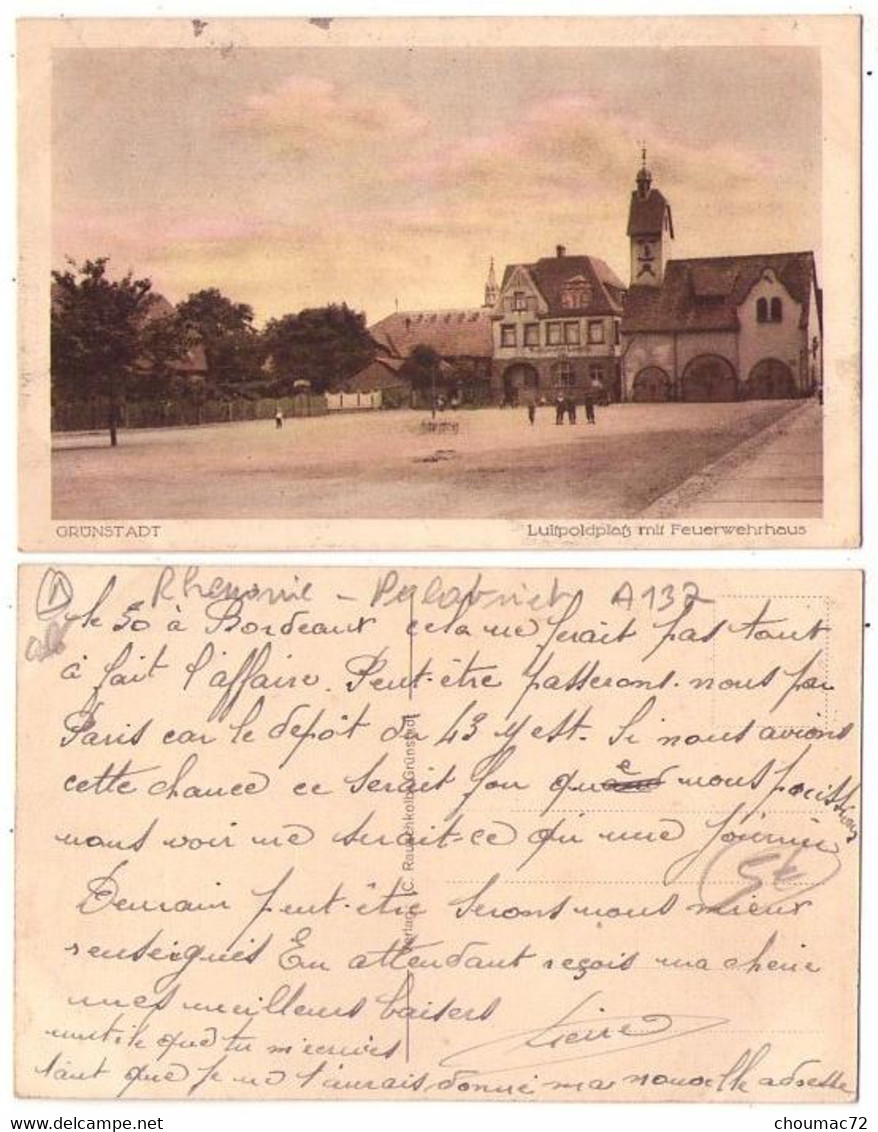 GRÜNSTADT
Luitpoldplatz mit Feuerwehrhaus
1
Rhenanie - Palatinat A137
le 30 à Bordeaux cela ne ferait pas tout
à fait l'affaire. Peut-être passerons-nous par
Paris car le dépôt du 43 y est. Si nous avions
cette chance ce serait fou que nous puissions
nous voir ne serait-ce qu'une journée
5€
Demain peut-être serons nous mieux
renseignés En attendant reçois ma cherie
mes meilleurs baisers
Pierre
inutile que tu m'écrives
tant que je ne t'aurais donné ma nouvelle adresse
Verlag C. Rauschkolb, Grünstadt
choumac72